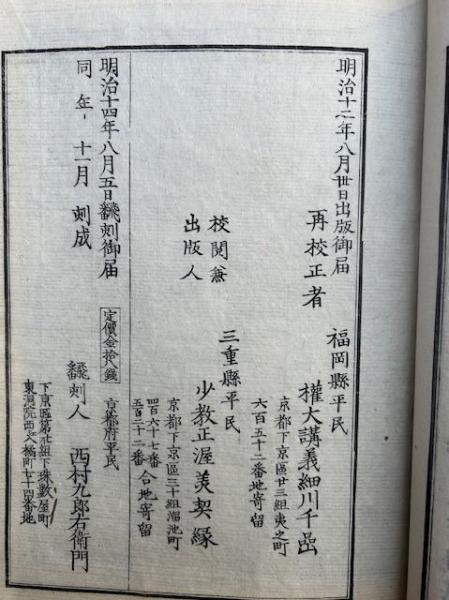 明治十二年八月卅日出版御届
再校正者
福岡縣平民
權大講義細川千嵒
京都下京區廿三組夷之町
六百五十二番地寄留
校閲兼
出版人
三重縣平民
少教正渥美契縁
京都下京區三十組溜池町
四百六十七番
五百二十二番
合地寄留
明治十四年八月五日飜刻御届
同年十一月刻成
定價金拾八錢
京都府平民
飜刻人 西村九郎右衛門
下京區第組下珠數屋町
東洞院西入橘町七十四番地